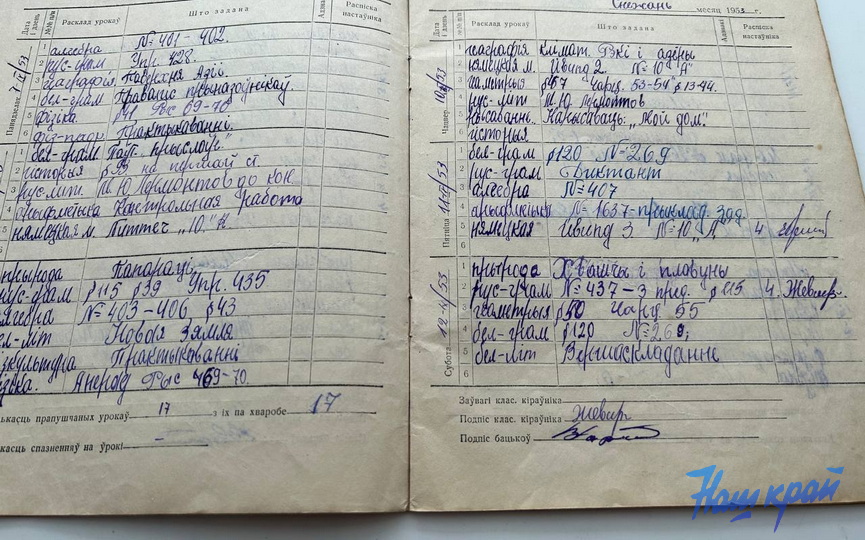 Дата і дзень
№№ п/п
Расклад урокаў
Што задана
Адзнакі
Распіска настаўніка
Панядзелак
1 алгебра № 401-402.
2 рус-грам Упр. 428.
3 геаграфія Паверхня Азіі.
4 бел-грам Правапіс прыназоўнікаў.
5 фізіка §41 Рыс 69-70
6 Практыкаванні.
1 бел-грам прыслоўе"
2 історыя § 33 на першай ст.
3 рус-лит. М. Ю. Лермонтов до кон.
4 арыфметыка Кантрольная работа
5 нямецкая м. "10."
6
прырода Папараці,
рус-грам §115 §39 Упр. 435
алгебра № 403-406 §43
бел-літ Новая зямля
фізкультура Практыкаванні
фізыка. Рыс 469-70.
колькасць прапушчаных урокаў 17 з іх па хваробе 17
колькасць спазненняў на ўрокі –
Снежань месяц 1953 г.
Дата і дзень
№№ п/п
Расклад урокаў
Што задана
Адзнакі
Распіска настаўніка
Чацвер
1 геаграфія Клімат. Рэкі і азёры
2 нямецкая м. Ивинд 2. № 10 "А"
3 геаметрыя §67 Чарц. 53-54 §13-44.
4 рус-лит М. Ю. Лермонтов
5 рысаванн. Нарысаваць: "Мой дом".
6 історыя
Пятніца
1 бел-грам §120 № 269
2 рус-грам Диктант
3 алгебра № 407
4 арыфметыка № 1637-прыклад. зад.
5 нямецкая Ивинд 3 № 10 "Д" 4
6
Субота 12-XII 53
1 прырода Хвашчы і плавуны
2 рус-грам № 437 – 3 пред. §115 4. Жевнер.
3 геаметрыя §40 Чарц 55
4 бел-грам §120 № 269;
5 бел-літ Вершаскладанне
6
Заўвагі клас. кіраўніка
Подпіс клас. кіраўніка Жевнер
Подпіс бацькоў
Наш край